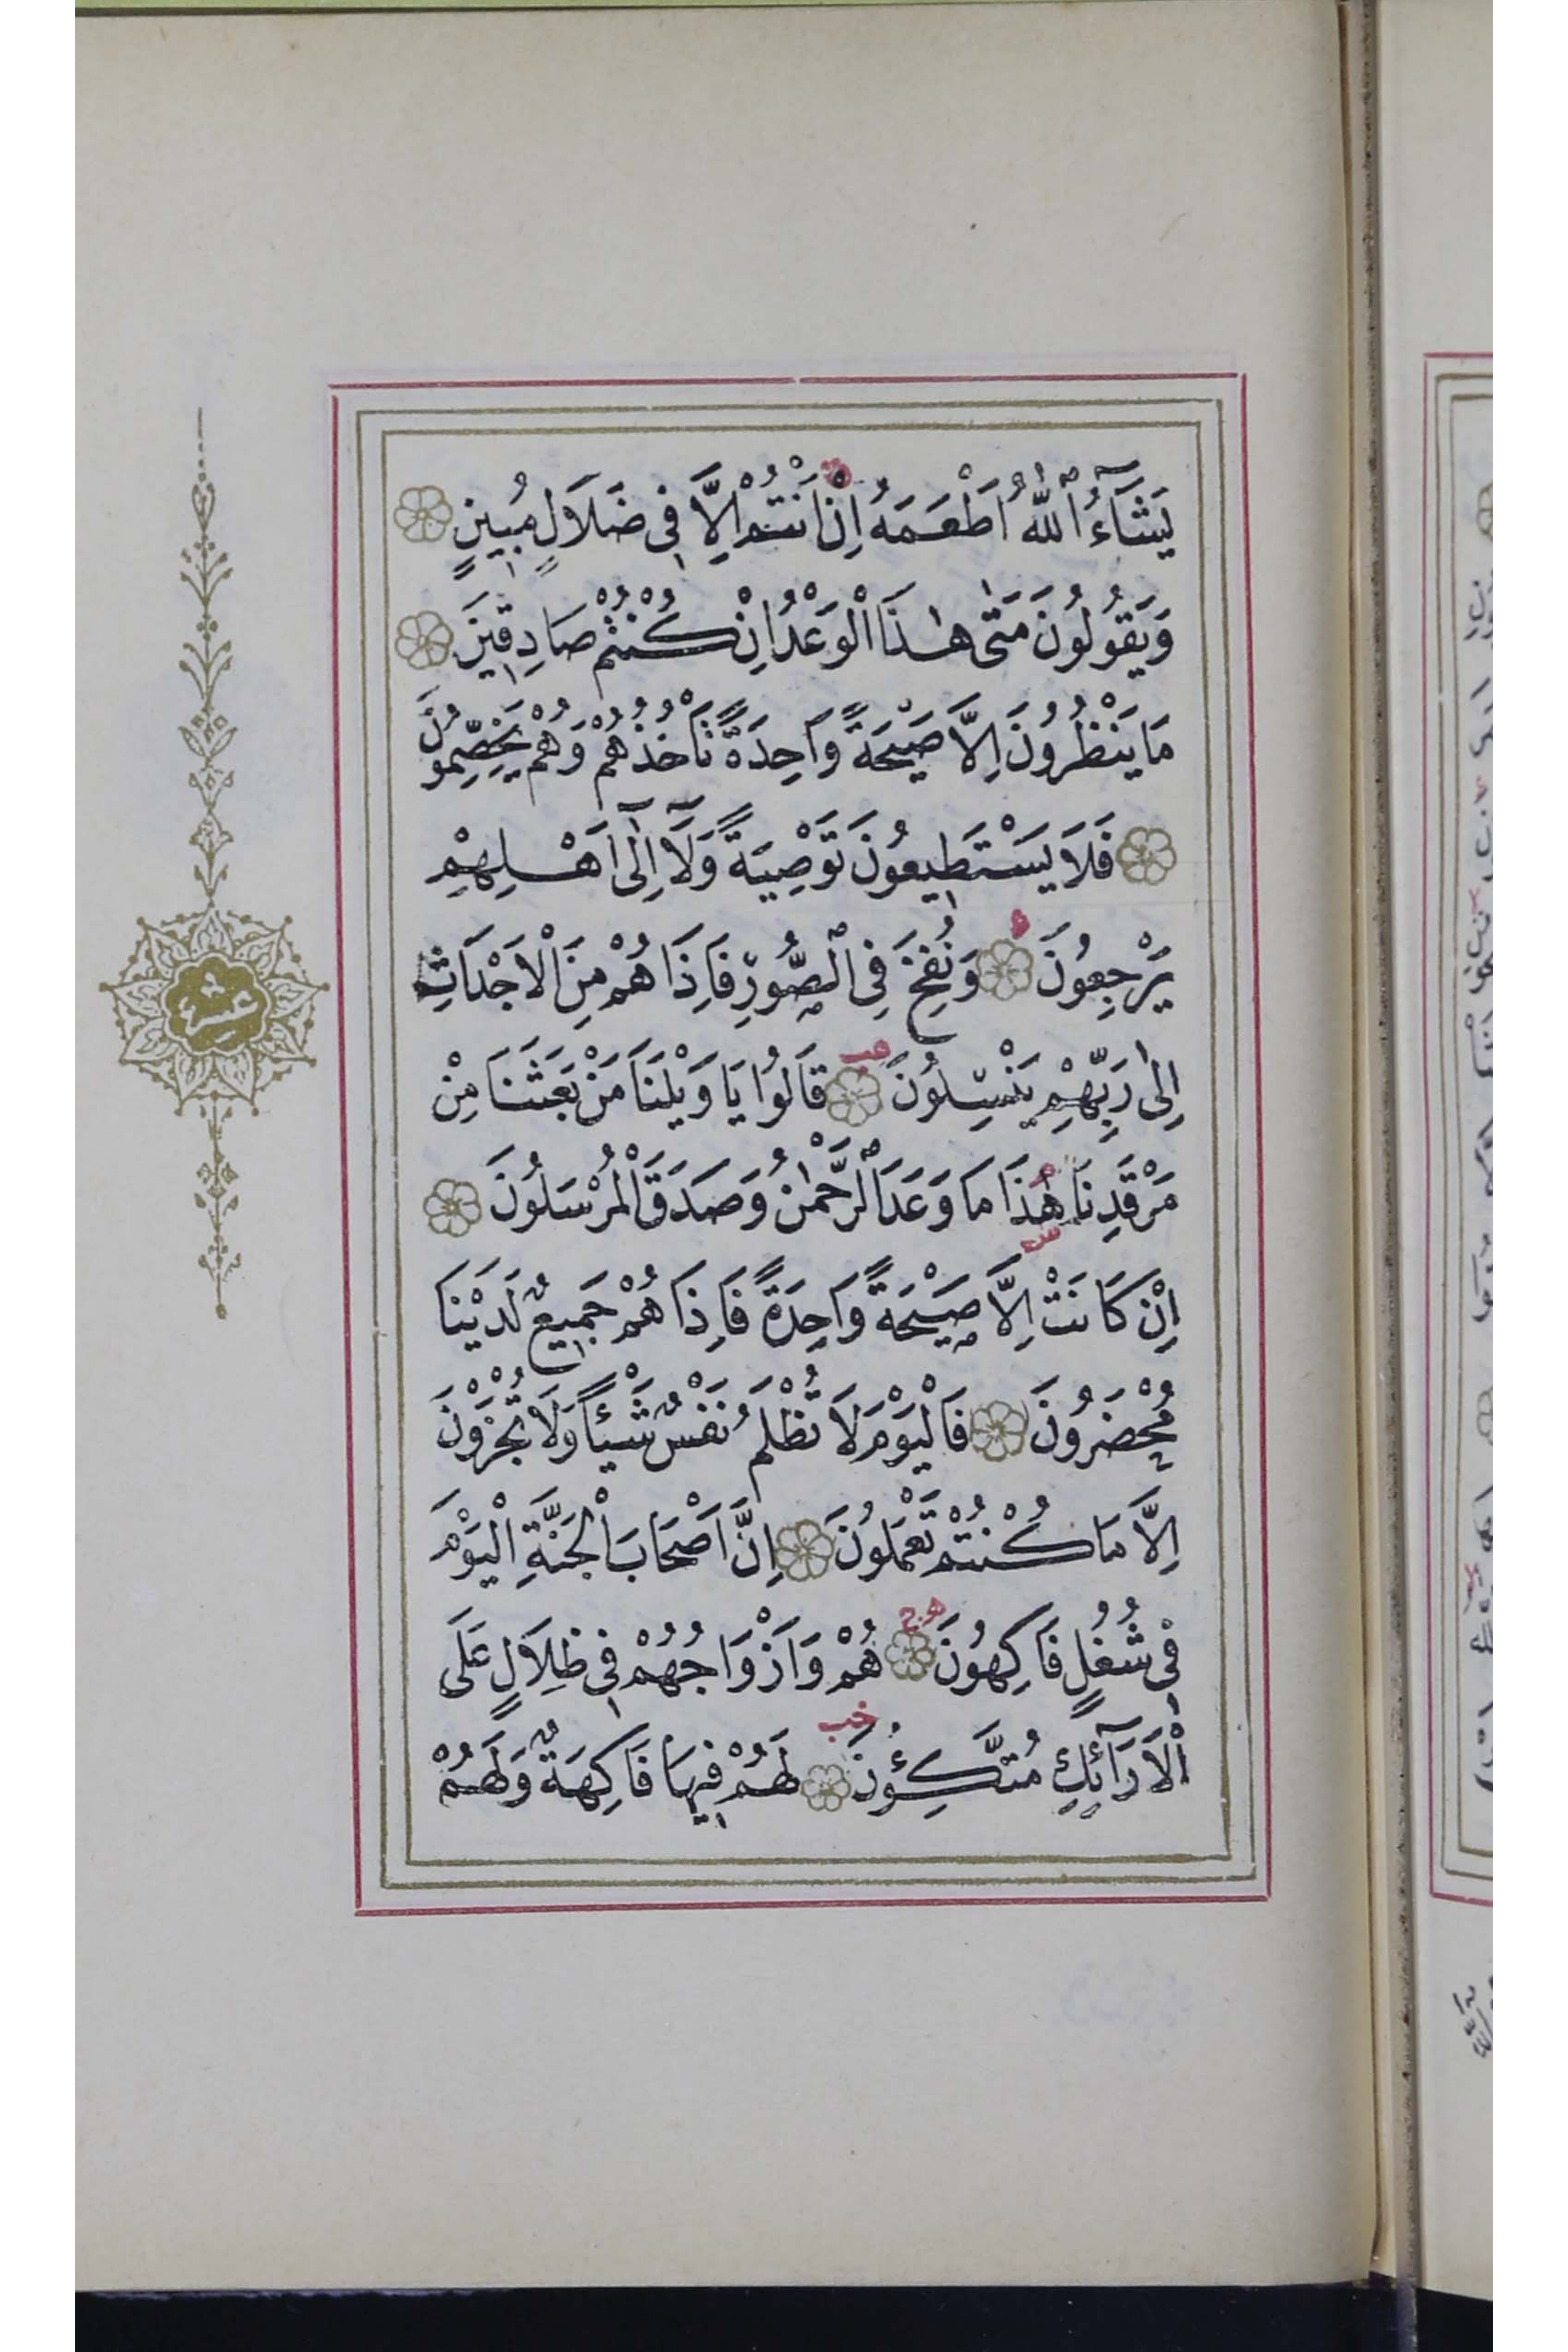 يَشَٓاءُ ٱللّٰهُ اَطْعَمَهُٓ اِنْ اَنْتُمْ اِلَّا فٖي ضَلَالٍ مُبٖينٍ
وَيَقُولُونَ مَتٰى هٰذَا الْوَعْدُ اِنْ كُنْتُمْ صَادِقٖينَ
مَا يَنْظُرُونَ اِلَّا صَيْحَةً وَاحِدَةً تَأْخُذُهُمْ وَهُمْ يَخِصِّمُونَ
فَلَا يَسْتَطٖيعُونَ تَوْصِيَةً وَلَٓا اِلٰٓى اَهْلِهِمْ
يَرْجِعُونَ وَنُفِخَ فِي ٱلصُّورِ فَاِذَا هُمْ مِنَ الْاَجْدَاثِ
اِلٰى رَبِّهِمْ يَنْسِلُونَ قَالُوا يَا وَيْلَنَا مَنْ بَعَثَنَا مِنْ
مَرْقَدِنَا هٰذَا مَا وَعَدَ ٱلرَّحْمٰنُ وَصَدَقَ الْمُرْسَلُونَ
اِنْ كَانَتْ اِلَّا صَيْحَةً وَاحِدَةً فَاِذَا هُمْ جَمٖيعٌ لَدَيْنَا
مُحْضَرُونَ فَالْيَوْمَ لَا تُظْلَمُ نَفْسٌ شَيْئًا وَلَا تُجْزَوْنَ
اِلَّا مَا كُنْتُمْ تَعْمَلُونَ اِنَّ اَصْحَابَ الْجَنَّةِ الْيَوْمَ
فٖي شُغُلٍ فَاكِهُونَ هُمْ وَاَزْوَاجُهُمْ فٖي ظِلَالٍ عَلَى
الْاَرَٓائِكِ مُتَّكِؤُنَ لَهُمْ فٖيهَا فَاكِهَةٌ وَلَهُمْ
عشر